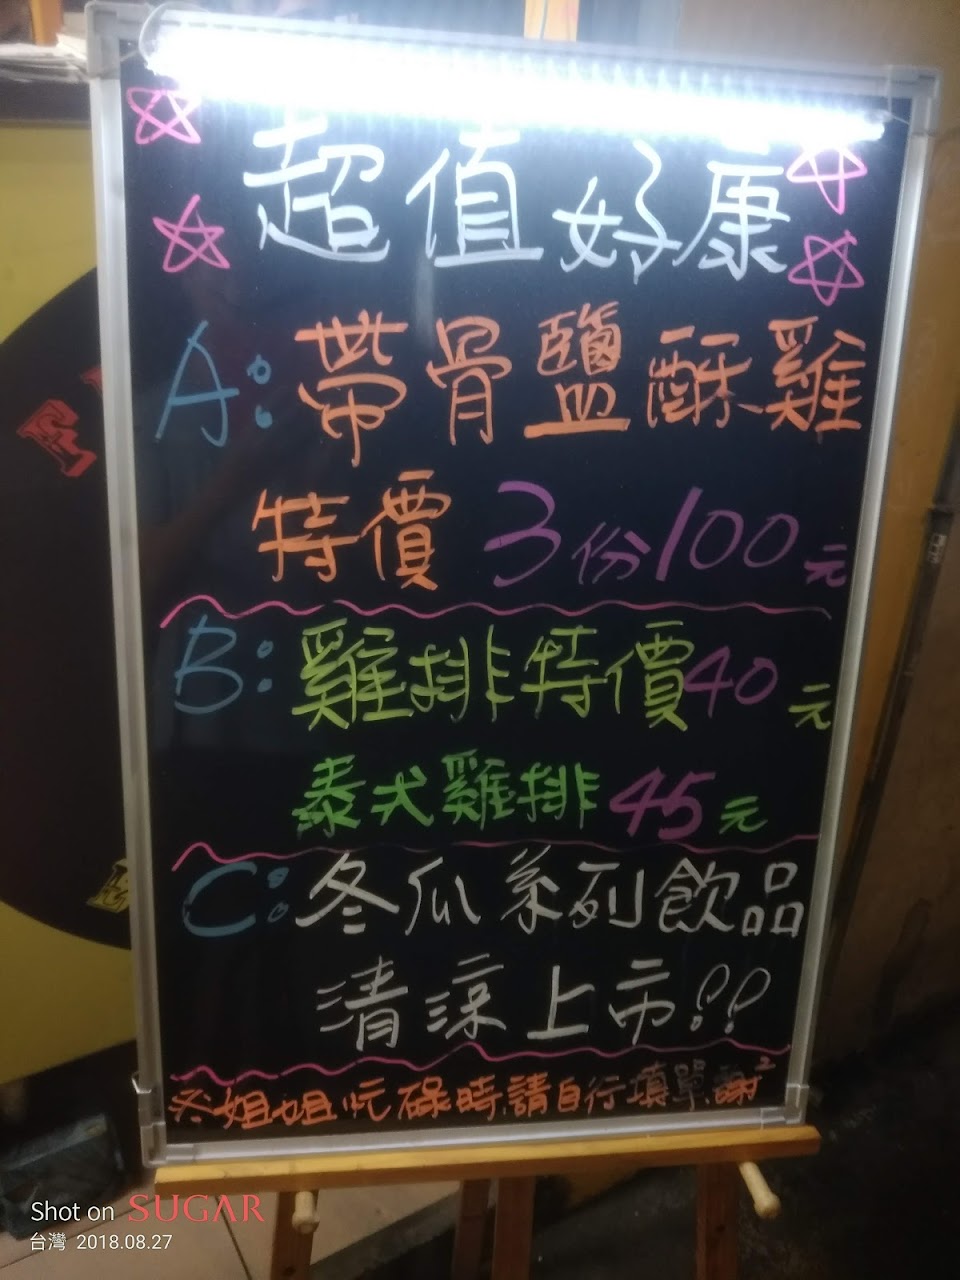 超值好康
A:帶骨鹽酥雞
特價3份100元
B:雞排特價40元
泰式雞排45元
C:冬瓜系列飲品
清涼上市!!
姐姐忙碌時請自行填單謝²
Shot on SUGAR
台灣 2018.08.27